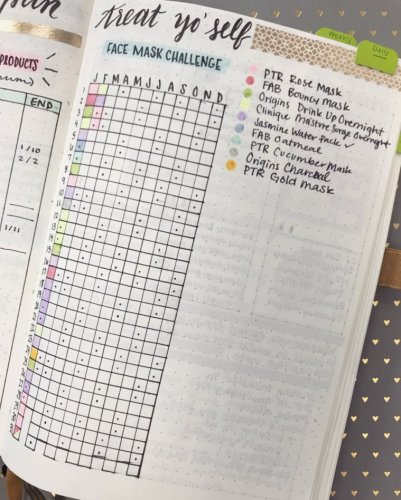 treat yo' self
FACE MASK CHALLENGE
J F M A M J J A S O N D
PTR Rose Mask
FAB Bouncy Mask
Origins Drink Up Overnight
Clinique Moisture Surge Overnight
Jasmine Water Pack ✓
FAB Oatmeal
PTR Cucumber Mask
Origins Charcoal
PTR Gold Mask
Weekly
Daily
PRODUCTS
END
1/10
2/2
1/11